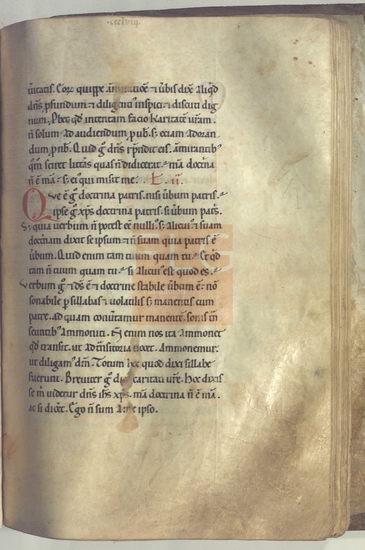 ueritatis. Cor quippe ammiratione
dns pfundum & diligent inspici & discuti dig
num. Plbet qd intentam facio Karitate uram.
n solum ad audiendum pnob. s; eciam ad oran
dum pnob. Quid g dns rpndit eis. ammirantib;
qm sciret litas quas n didicerat. mea doctna
n e mea. s; ei qui misit me. L. ii.
Que e g doctrina patris. nisi uerbum patris.
Ipse g xps doctrina patris. si uerbum patris.
S; quia uerbum n potest ee nullius. s; alicuius & suam
doctnam dixit se ipsum & n suam quia patris e
uerbum. Quid enim tam tuum quam tu. & qd
tam n tuum quam tu. si alicuius est quod es.
Verbum g & ds e & doctrine stabile uerbum e. no
sonabile p sillabas & uolatile s; manens cum
patre. ad quam conuertamur manente. sonis
Ammoniti. enim nos ita ammonet
qd transit. ut ad transitoria uocet. Ammonemur.
ut diligam dm. Totum hoc quod dixi sillabe
fuerunt. Breuiter g dico caritati ure. Hoc dixisse
m uidetur dns ihs xps. mea doctrina n e mea.
ac si dicet. Ego n sum a me ipso.